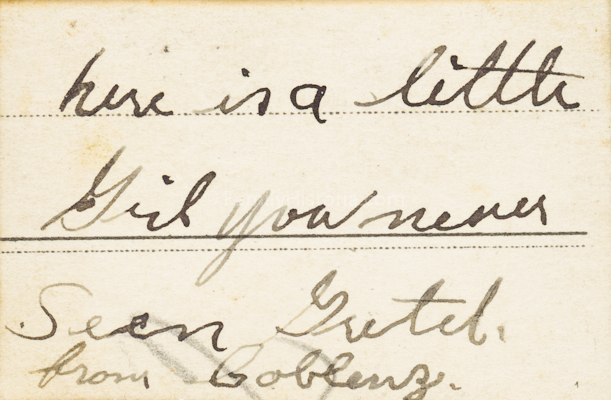 here is a little
Girl you never
Seen Gretel.
from Coblenz.